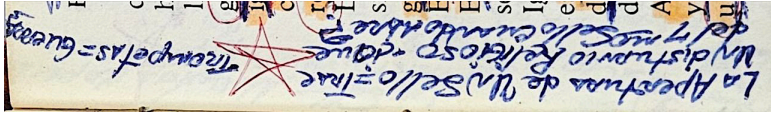 La Apertura de Un Sello = Trae
Un disturbio Religioso - ¿Que
del 7mo Sello cuando abre?
Trompetas = Guerras